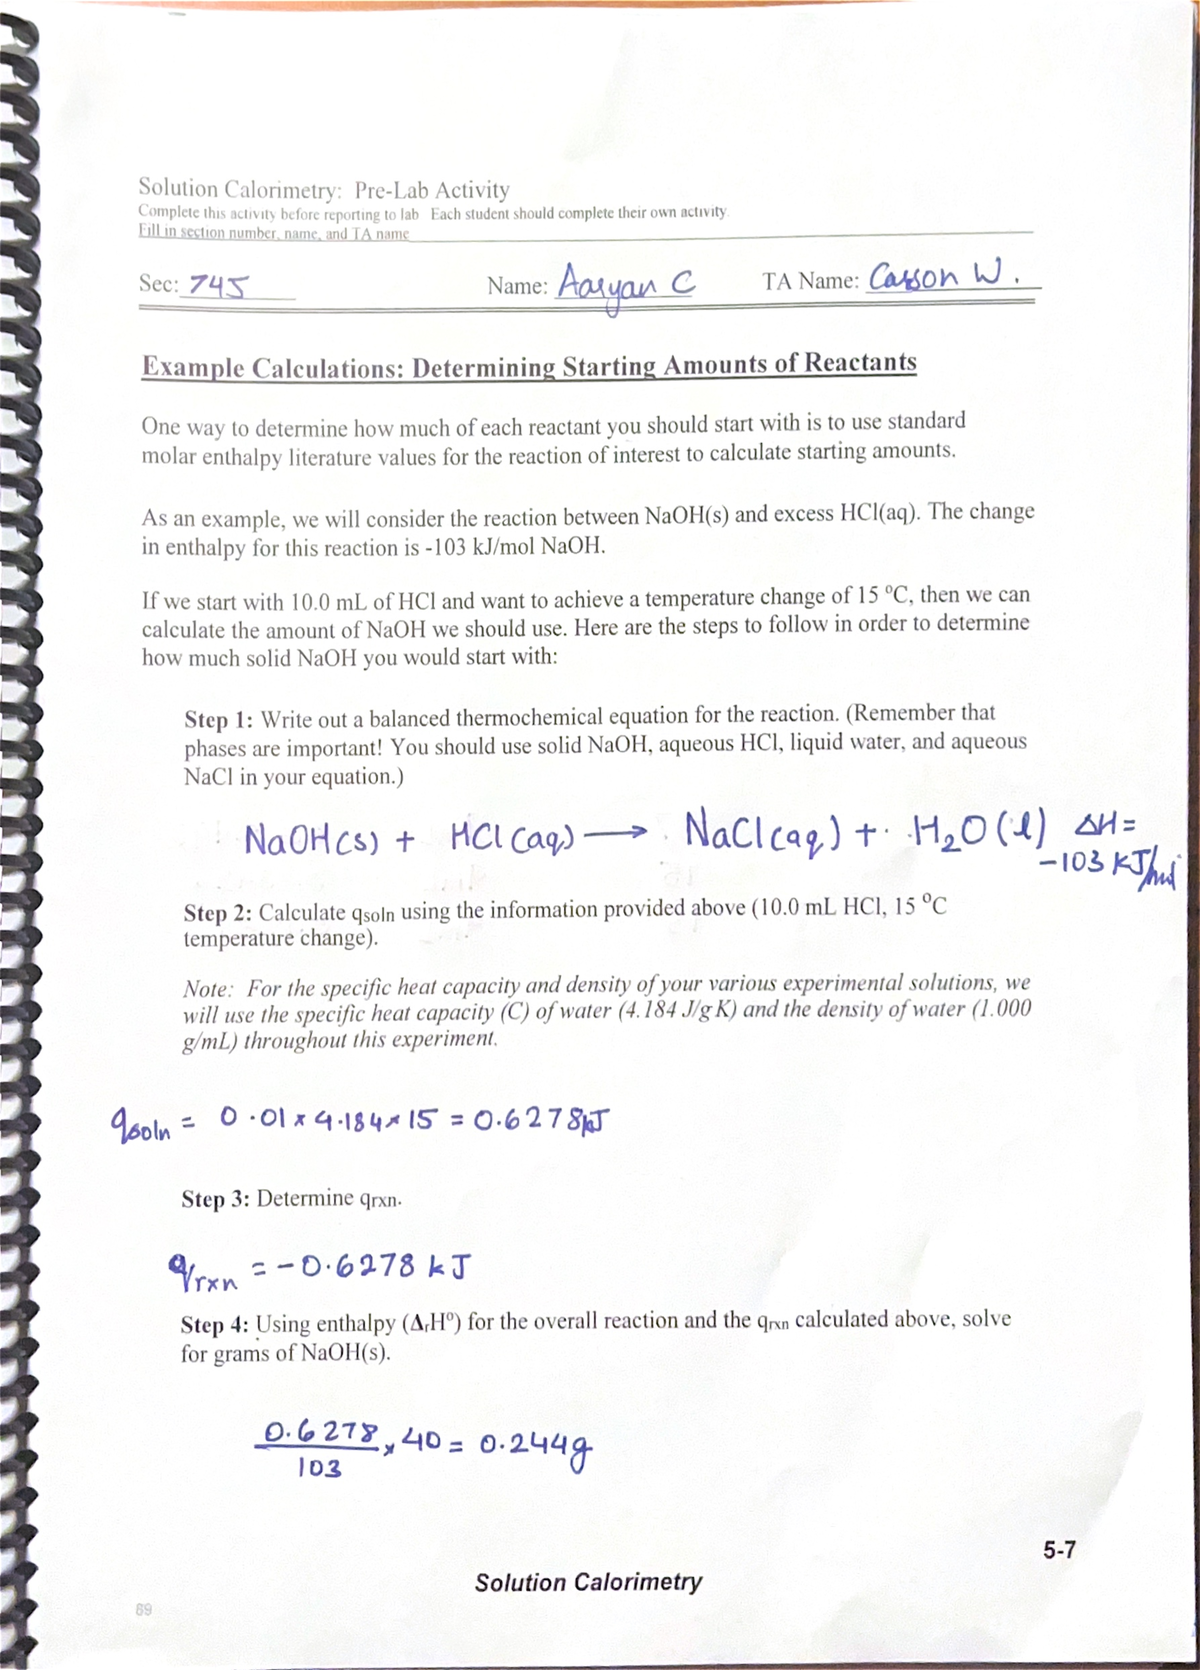 Solution Calorimetry: Pre-Lab Activity
Complete this activity before reporting to lab Each student should complete their own activity.
Fill in section number, name, and TA name
Sec: 745 Name: Aaryan C TA Name: Carson W.
Example Calculations: Determining Starting Amounts of Reactants
One way to determine how much of each reactant you should start with is to use standard
molar enthalpy literature values for the reaction of interest to calculate starting amounts.
As an example, we will consider the reaction between NaOH(s) and excess HCl(aq). The change
in enthalpy for this reaction is -103 kJ/mol NaOH.
If we start with 10.0 mL of HCl and want to achieve a temperature change of 15 ºC, then we can
calculate the amount of NaOH we should use. Here are the steps to follow in order to determine
how much solid NaOH you would start with:
Step 1: Write out a balanced thermochemical equation for the reaction. (Remember that
phases are important! You should use solid NaOH, aqueous HCl, liquid water, and aqueous
NaCl in your equation.)
NaOH(s) + HCl(aq) → NaCl(aq) + H₂O(l) ΔH=
-103 KJ/mol
Step 2: Calculate qsoln using the information provided above (10.0 mL HCl, 15 ºC
temperature change).
Note: For the specific heat capacity and density of your various experimental solutions, we
will use the specific heat capacity (C) of water (4.184 J/g K) and the density of water (1.000
g/mL) throughout this experiment.
qsoln = 0.01 × 4.184 × 15 = 0.6278kJ
Step 3: Determine qrxn.
qrxn = -0.6278 kJ
Step 4: Using enthalpy (ΔrHº) for the overall reaction and the qrxn calculated above, solve
for grams of NaOH(s).
0.6278 × 40 = 0.244g
103
5-7
Solution Calorimetry
69